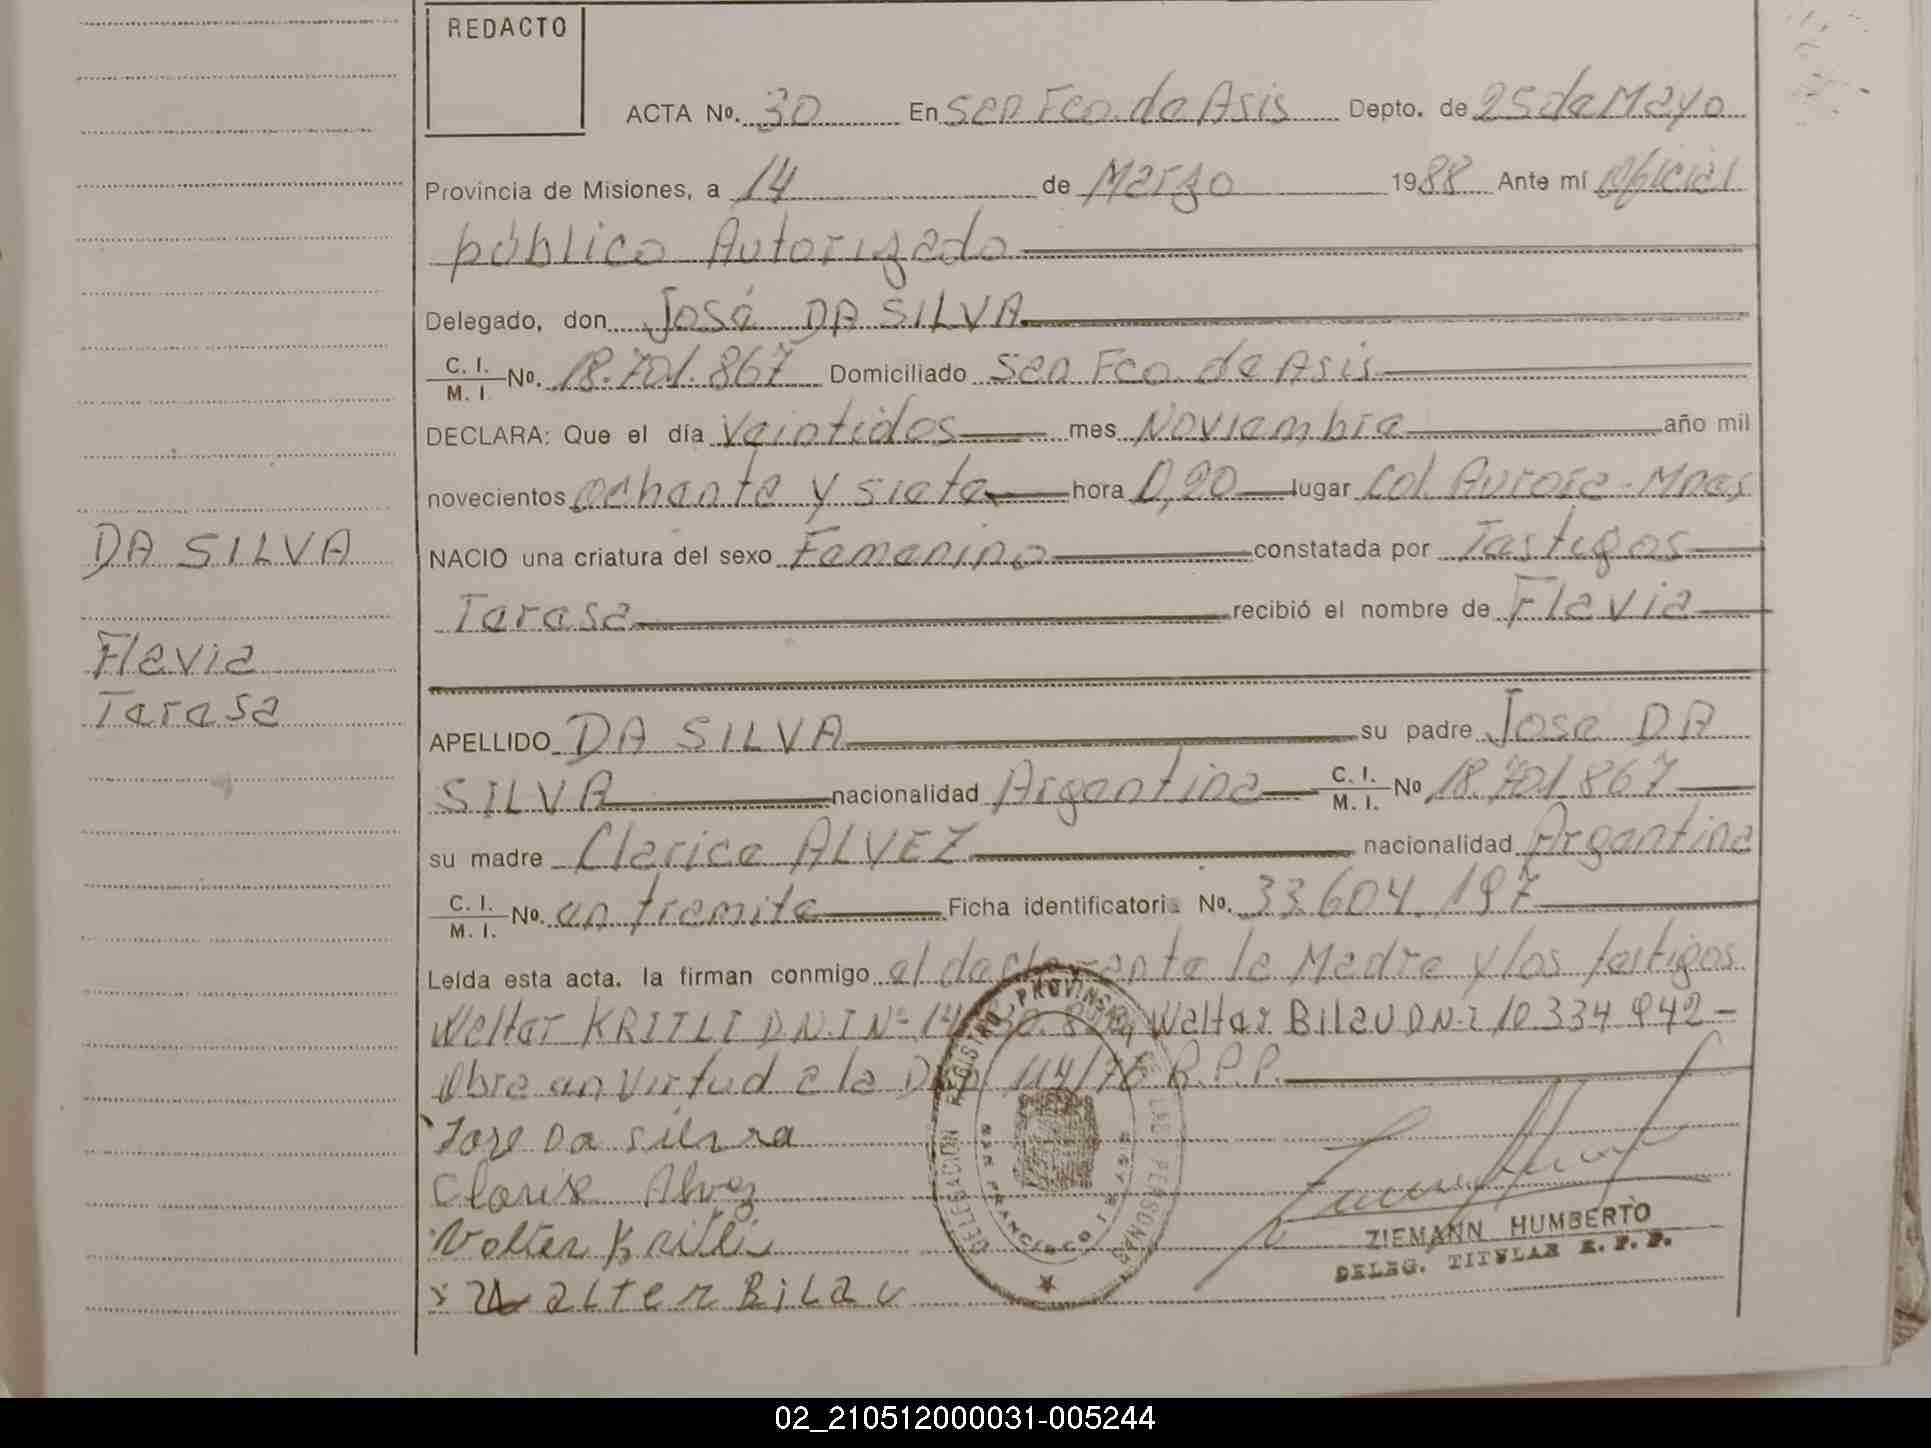 REDACTO
ACTA Nº. 30 En San Fco. de Asis Depto. de 25 de Mayo
Provincia de Misiones, a 14 de Marzo 1988 Ante mí Oficial
público Autorizado
Delegado, don José DA SILVA
C. I. M. I. Nº. 18.701.867 Domiciliado San Fco. de Asis
DECLARA: Que el día Veintidos mes Noviembre año mil
novecientos ochenta y siete hora 0,20 lugar Col. Aurora - Mnes
NACIO una criatura del sexo Femenino constatada por Testigos
Teresa recibió el nombre de Flavia
APELLIDO DA SILVA su padre Jose DA
SILVA nacionalidad Argentina C. I. M. I. Nº 18.701.867
su madre Clarice ALVEZ nacionalidad Argentina
C. I. M. I. Nº. en tramite Ficha identificatoria Nº. 33.604.197
Leída esta acta. la firman conmigo el declarante la Madre y los testigos
Walter KRITLI D.N.I Nº Walter Bilau D.N.I 10 334 942 -
Obra en virtud a la 114/76 R.P.P.
Jose Da silva
Clarise Alvez
Volter Kritli
Walter Bilau
DELEGACION REGISTRO PROVINCIAL DE LAS PERSONAS
SAN FRANCISCO
ZIEMANN HUMBERTO
DELEG. TITULAR R. P. P.
DA SILVA
Flavia
Teresa
02_210512000031-005244